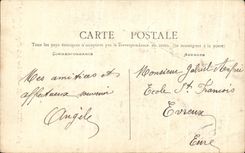 CARTE POSTALE
Tous les pays étrangers n'acceptent pas la Correspondance au recto. (Se renseigner à la poste)
CORRESPONDANCE
ADRESSE
Mes amitiés et
affectueux souvenir
Angèle
Monsieur Gabriel
Ecole St François
Evreux
Eure